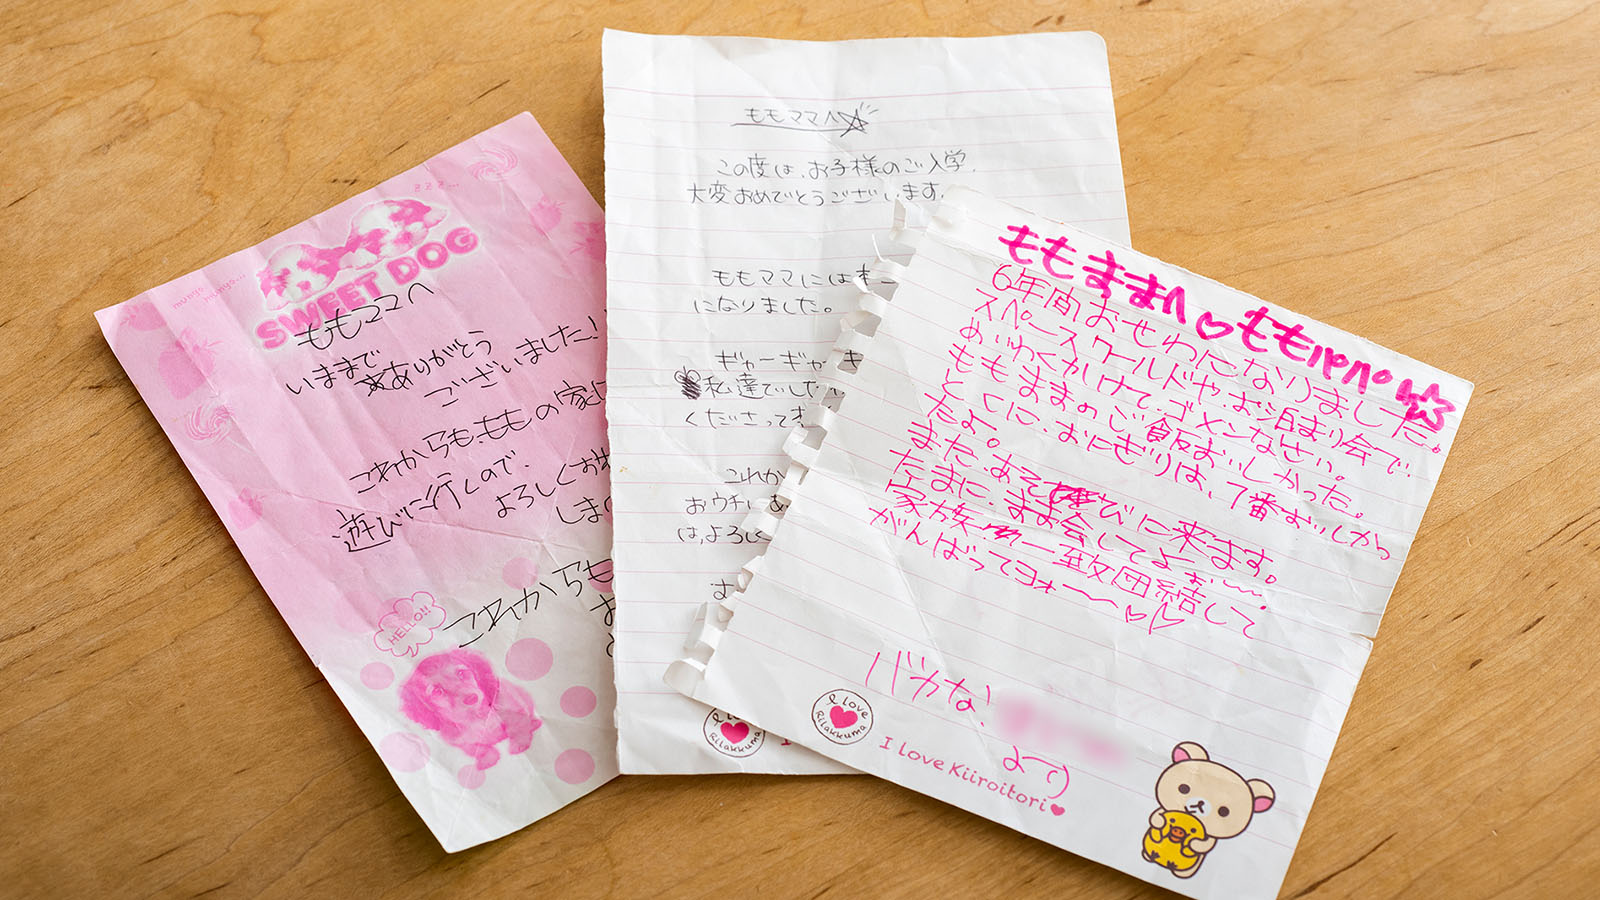 zzz...
munyo...
munyo...
SWEET DOG
ももママへ
いままで
ありがとう
ございました!
これからも、ももの家に
遊びに行くので、
よろしくお
しま
これからも
お
HELLO!!
ももママへ☆
この度は、お子様のご入学、
大変おめでとうございます。
ももママには
になりました。
ギャーギャー
私達でした
くださって
これか
おウチにあ
は、よろし
I love
Rilakkuma
ももままへ♡ももパパへ
6年間おせわになりました。
スペースワールドや、お泊まり会で、
めいわくかけて、ゴメンなさい。
ももままのご飯おいしかった。
とくに、おにぎりは、1番おいしかっ
たよ。
また、あそびに来ます。
たまに、まま会してよぉ〜。
家族一致団結して
がんばってヨォー〜♡
バカな、
より
I love
Rilakkuma
I love Kiiroitori♥